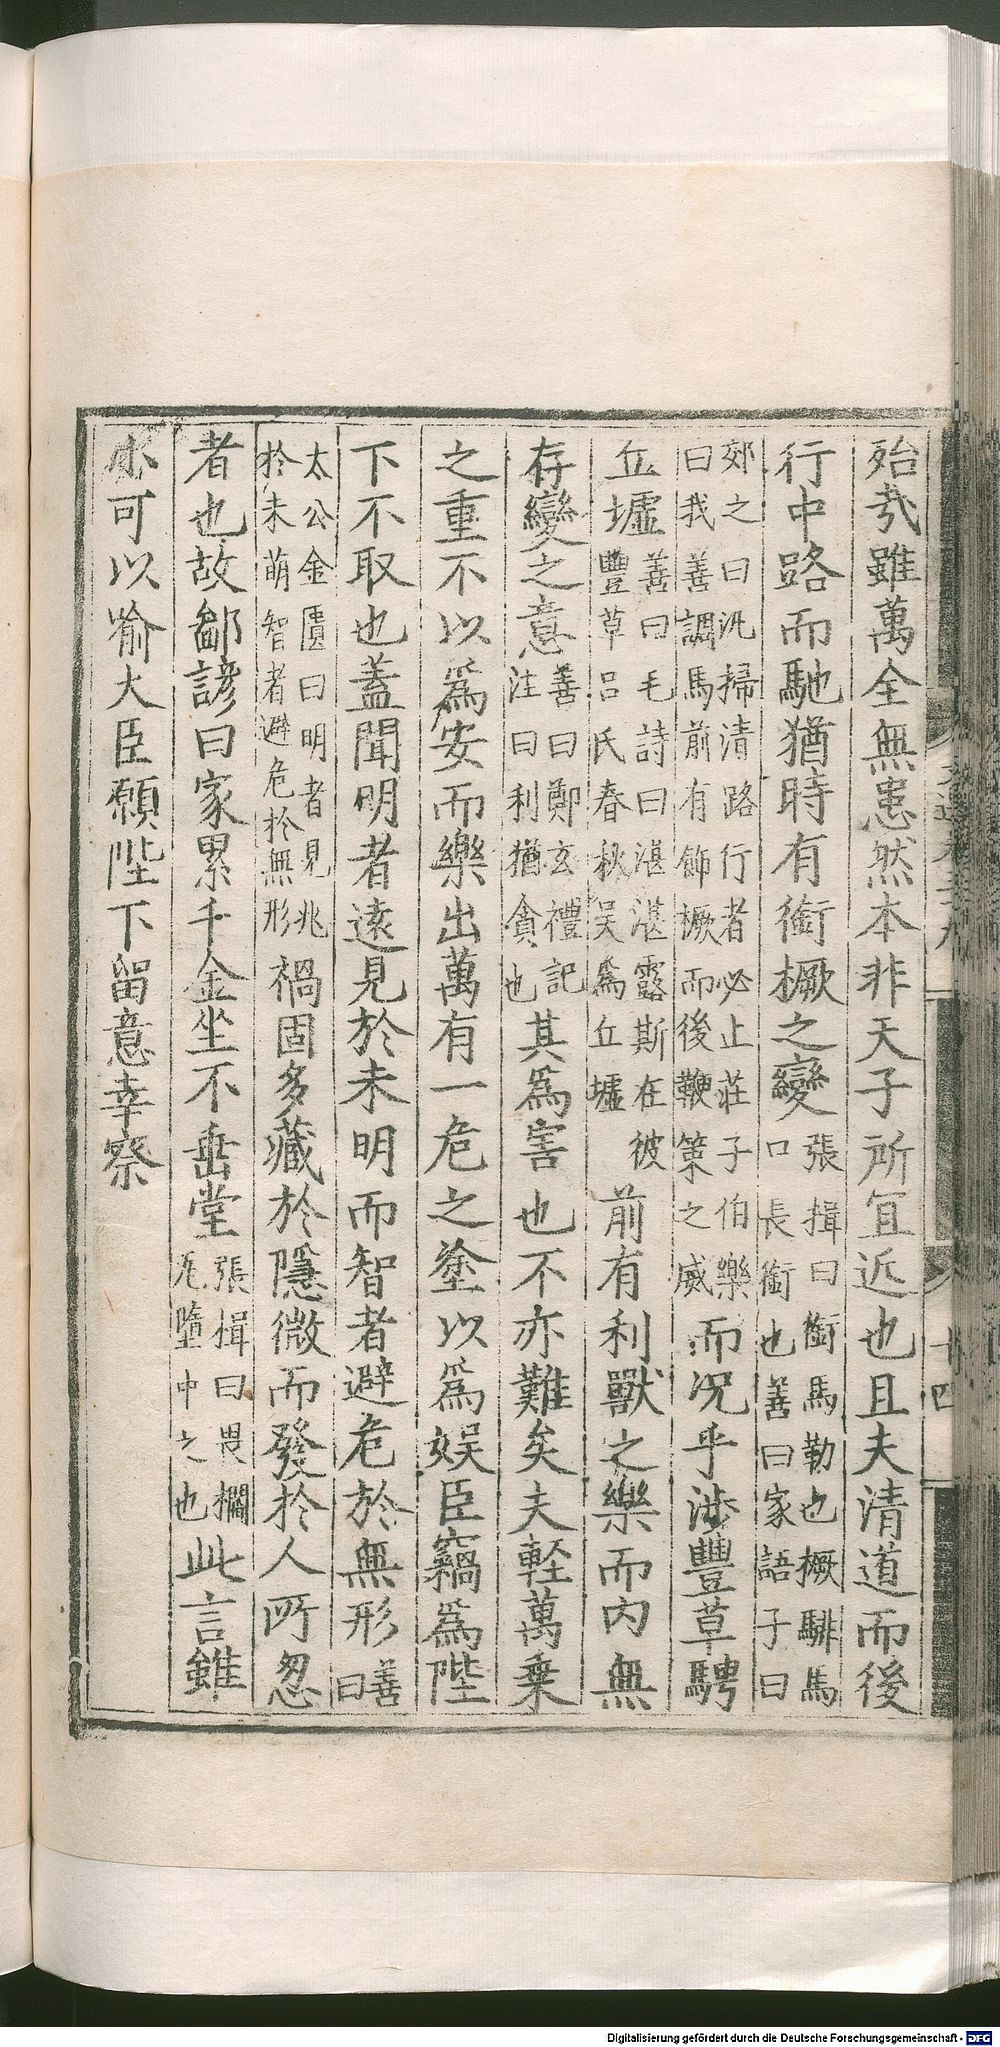 殆㢤雖萬全無患然本非天子所冝近也且夫清道而後
行中路而馳猶時有銜橛之變張揖曰銜馬勒也橛騑馬
口長銜也善曰家語子曰
郊之曰汎掃清路行者必止莊子伯樂
曰我善調馬前有飾橛而後鞭策之威而况乎涉豐草騁
丘墟善曰毛詩曰湛湛露斯在彼
豐草吕氏春秋吴為丘墟前有利獸之樂而内無
存變之意善曰鄭玄禮記
注曰利猶貪也其爲害也不亦難矣夫輕萬乗
之重不以爲安而樂出萬有一危之塗以爲娱臣竊爲陛
下不取也蓋聞明者遠見於未明而智者避危於無形善
曰
太公金匱曰明者見兆
於未萌智者避危於無形禍固多藏於隱微而發於人所忽
者也故鄙諺曰家累千金坐不垂堂張揖曰畏櫩
瓦墮中之也此言雖
小可以喻大臣願陛下留意幸察
十四
Digitalisierung gefördert durch die Deutsche Forschungsgemeinschaft - DFG